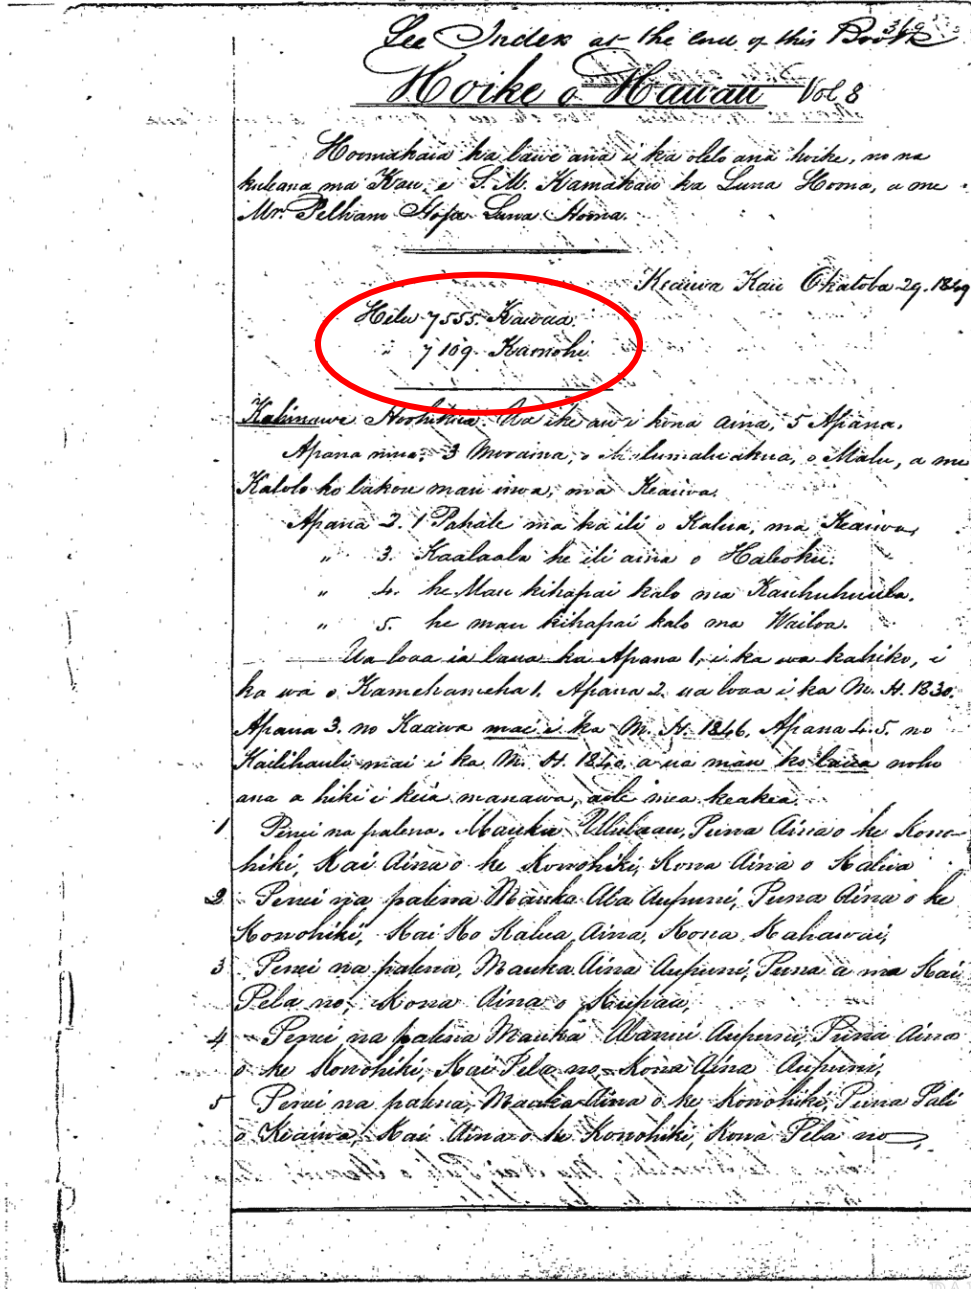 See Index at the end of this Book
369
Hoike o Hawaii Vol 8
Hoomakaia ka lawe ana i ka olelo ana hoike, no na
kuleana ma Kau, e S. M. Kamakau ka Luna Hoona, a me
Mr. Pelham Hope Luna Hoona.
Keaiwa Kau Okatoba 29. 1849
Helu 7555. Kawaa.
" 7109. Kamohi
Kahinawe Hoohikiia. Ua ike au i kona aina, 5 Apana.
Apana mua. 3 Mooaina, o lumaluakua, o Malu, a me
Kalolo ko lakou mau inoa, ma Keaiwa.
Apana 2. 1 Pahale ma ka ili o Kalua, ma Keaiwa,
" 3. Kaalaala he ili aina o Haleoku.
" 4. he Mau kihapai kalo ma Kauhuhuula.
" 5. he mau kihapai kalo ma Wailoa.
Ua loaa ia laua ka Apana 1, i ka wa kahiko, i
ka wa o Kamehameha 1. Apana 2. ua loaa i ka M. H. 1830.
Apana 3. no Kaawa mai i ka M. H. 1846, Apana 4. 5. no
Kailihauli mai i ka M. H. 1840, a ua mau ko laua noho
ana a hiki i keia manawa, aole mea keakea.
1 Penei na palena. Mauka Ululaau, Puna Aina o ke Kono-
hiki, Kai Aina o ke Konohiki, Kona Aina o Kalua
2 Penei na palena Mauka Ala Aupuni, Puna Aina o ke
Konohiki, Kai Ko Kalua Aina, Kona Kahawai,
3 Penei na palena, Mauka Aina Aupuni, Puna a ma Kai
Pela no, Kona Aina o Kupau,
4 Penei na palena Mauka Alanui Aupuni, Puna Aina
o ke Konohiki, Kai Pela no, Kona Aina Aupuni,
5 Penei na palena, Mauka Aina o ke Konohiki, Puna Pali
o Keaiwa, Kai Aina o ke Konohiki, Kona Pela no,